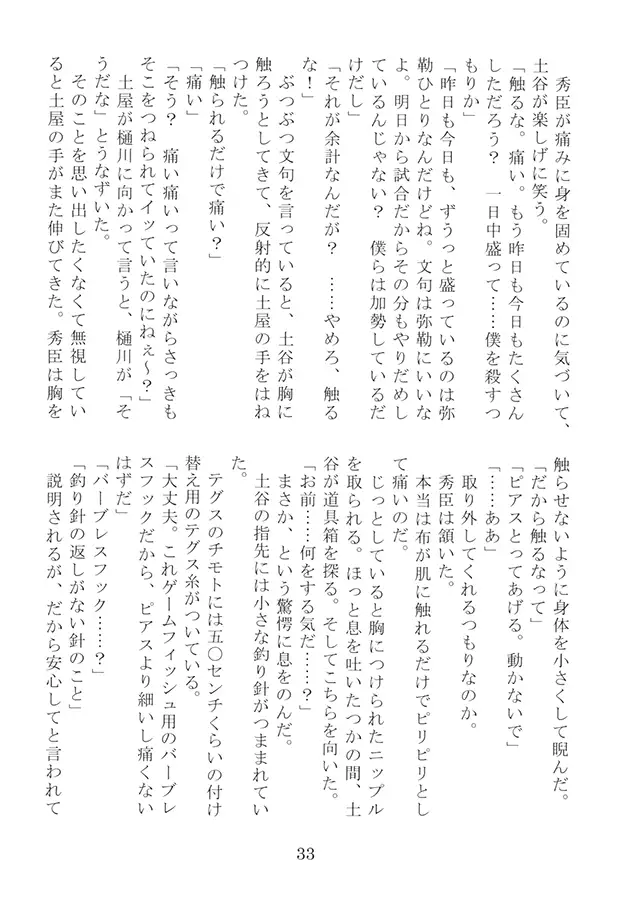 秀臣が痛みに身を固めているのに気づいて、
土谷が楽しげに笑う。
「触るな。痛い。もう昨日も今日もたくさん
しただろう？　一日中盛って……僕を殺すつ
もりか」
「昨日も今日も、ずうっと盛っているのは弥
勒ひとりなんだけどね。文句は弥勒にいいな
よ。明日から試合だからその分もやりだめし
ているんじゃない？　僕らは加勢しているだ
けだし」
「それが余計なんだが？　……やめろ、触る
な！」
　ぶつぶつ文句を言っていると、土谷が胸に
触ろうとしてきて、反射的に土屋の手をはね
つけた。
「触られるだけで痛い？」
「痛い」
「そう？　痛い痛いって言いながらさっきも
そこをつねられてイッていたのにねぇ～？」
　土屋が樋川に向かって言うと、樋川が「そ
うだな」とうなずいた。
　そのことを思い出したくなくて無視してい
ると土屋の手がまた伸びてきた。秀臣は胸を
触らせないように身体を小さくして睨んだ。
「だから触るなって」
「ピアスとってあげる。動かないで」
「……ああ」
　取り外してくれるつもりなのか。
　秀臣は頷いた。
　本当は布が肌に触れるだけでピリピリとし
て痛いのだ。
　じっとしていると胸につけられたニップル
を取られる。ほっと息を吐いたつかの間、土
谷が道具箱を探る。そしてこちらを向いた。
「お前……何をする気だ……？」
　まさか、という驚愕に息をのんだ。
　土谷の指先には小さな釣り針がつままれてい
た。
　テグスのチモトには五〇センチくらいの付け
替え用のテグス糸がついている。
「大丈夫。これゲームフィッシュ用のバーブレ
スフックだから、ピアスより細いし痛くない
はずだ」
「バーブレスフック……？」
「釣り針の返しがない針のこと」
　説明されるが、だから安心してと言われて
33